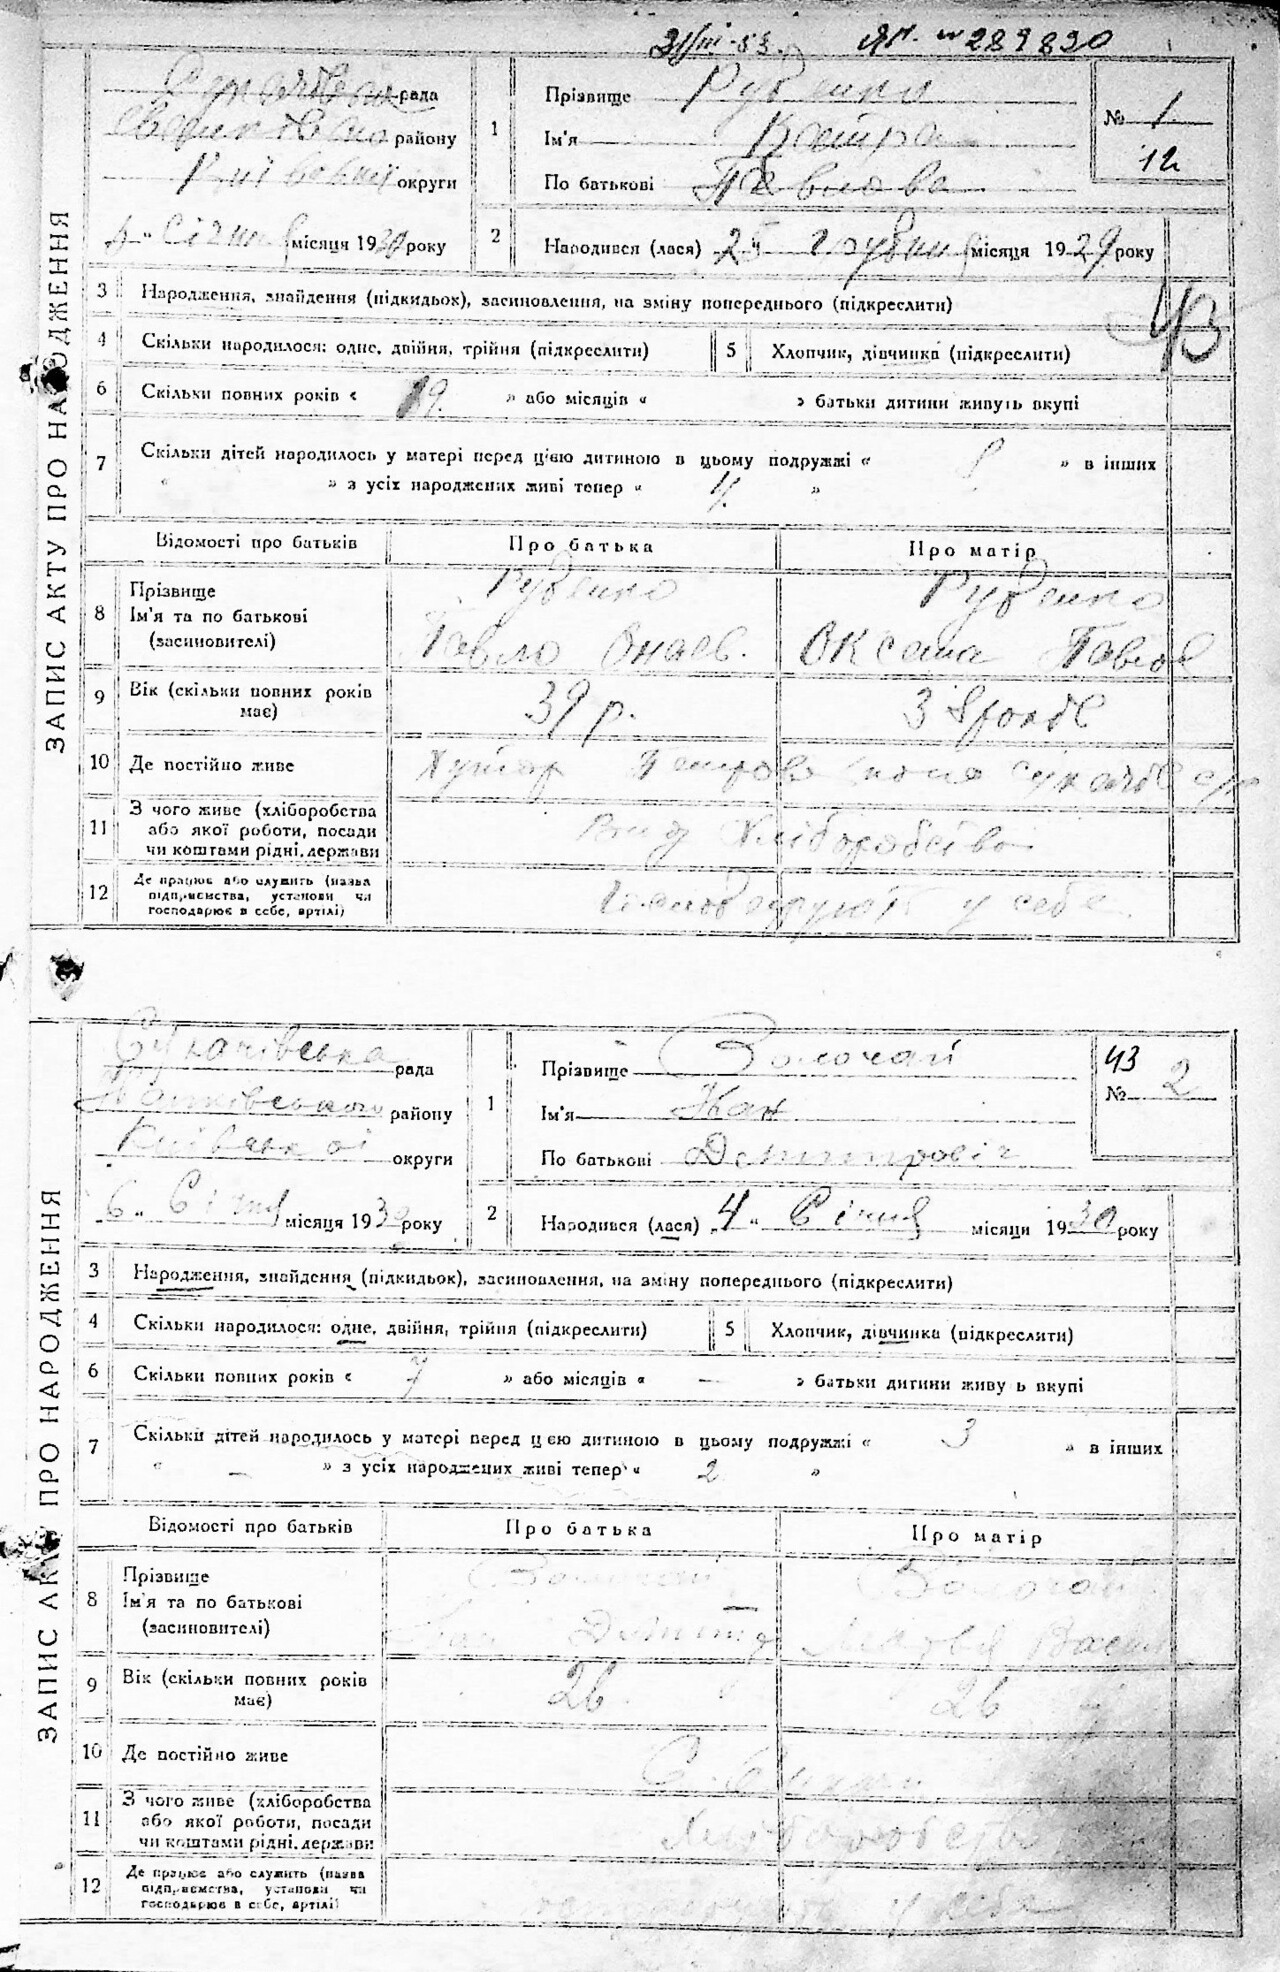 31/III-53. ЯП. № 289820
ЗАПИС АКТУ ПРО НАРОДЖЕННЯ
рада
району
округи
" Січня місяця 1930 року
1
Прізвище Рубенко
Ім'я
По батькові Павлова
№ 1
12
2
Народився (лася) 25 грудня місяця 1929 року
43
3 Народження, знайдення (підкидьок), засиновлення, на зміну попереднього (підкреслити)
4 Скільки народилося: одне, двійня, трійня (підкреслити) 5 Хлопчик, дівчинка (підкреслити)
6 Скільки повних років « 19. » або місяців « » батьки дитини живуть вкупі
7 Скільки дітей народилось у матері перед цією дитиною в цьому подружжі « » в інших
« » з усіх народжених живі тепер « 4. »
Відомості про батьків Про батька Про матір
8 Прізвище Рубенко Рубенко
Ім'я та по батькові Павло Оксана
(засиновителі)
9 Вік (скільки повних років має) 39 р. 38
10 Де постійно живе Хутор
11 З чого живе (хліборобства або якої роботи, посади чи коштами рідні, держави Хліборобство
12 Де працює або служить (назва підприємства, установи чи господарює в себе, артілі) у себе
ЗАПИС АКТУ ПРО НАРОДЖЕННЯ
Сукачівська рада
району
Київської округи
6 " Січня місяця 1930 року
1
Прізвище Волочай
Ім'я Іван
По батькові Дмитровіч
43
№ 2
2
Народився (лася) 4 " Січня місяця 1930 року
3 Народження, знайдення (підкидьок), засиновлення, на зміну попереднього (підкреслити)
4 Скільки народилося: одне, двійня, трійня (підкреслити) 5 Хлопчик, дівчинка (підкреслити)
6 Скільки повних років « 7 » або місяців « — » батьки дитини живуть вкупі
7 Скільки дітей народилось у матері перед цією дитиною в цьому подружжі « 3 » в інших
« — » з усіх народжених живі тепер « 2 »
Відомості про батьків Про батька Про матір
8 Прізвище Волочай
Ім'я та по батькові
(засиновителі)
9 Вік (скільки повних років має) 26 26
10 Де постійно живе
11 З чого живе (хліборобства або якої роботи, посади чи коштами рідні, держави
12 Де працює або служить (назва підприємства, установи чи господарює в себе, артілі) у себе